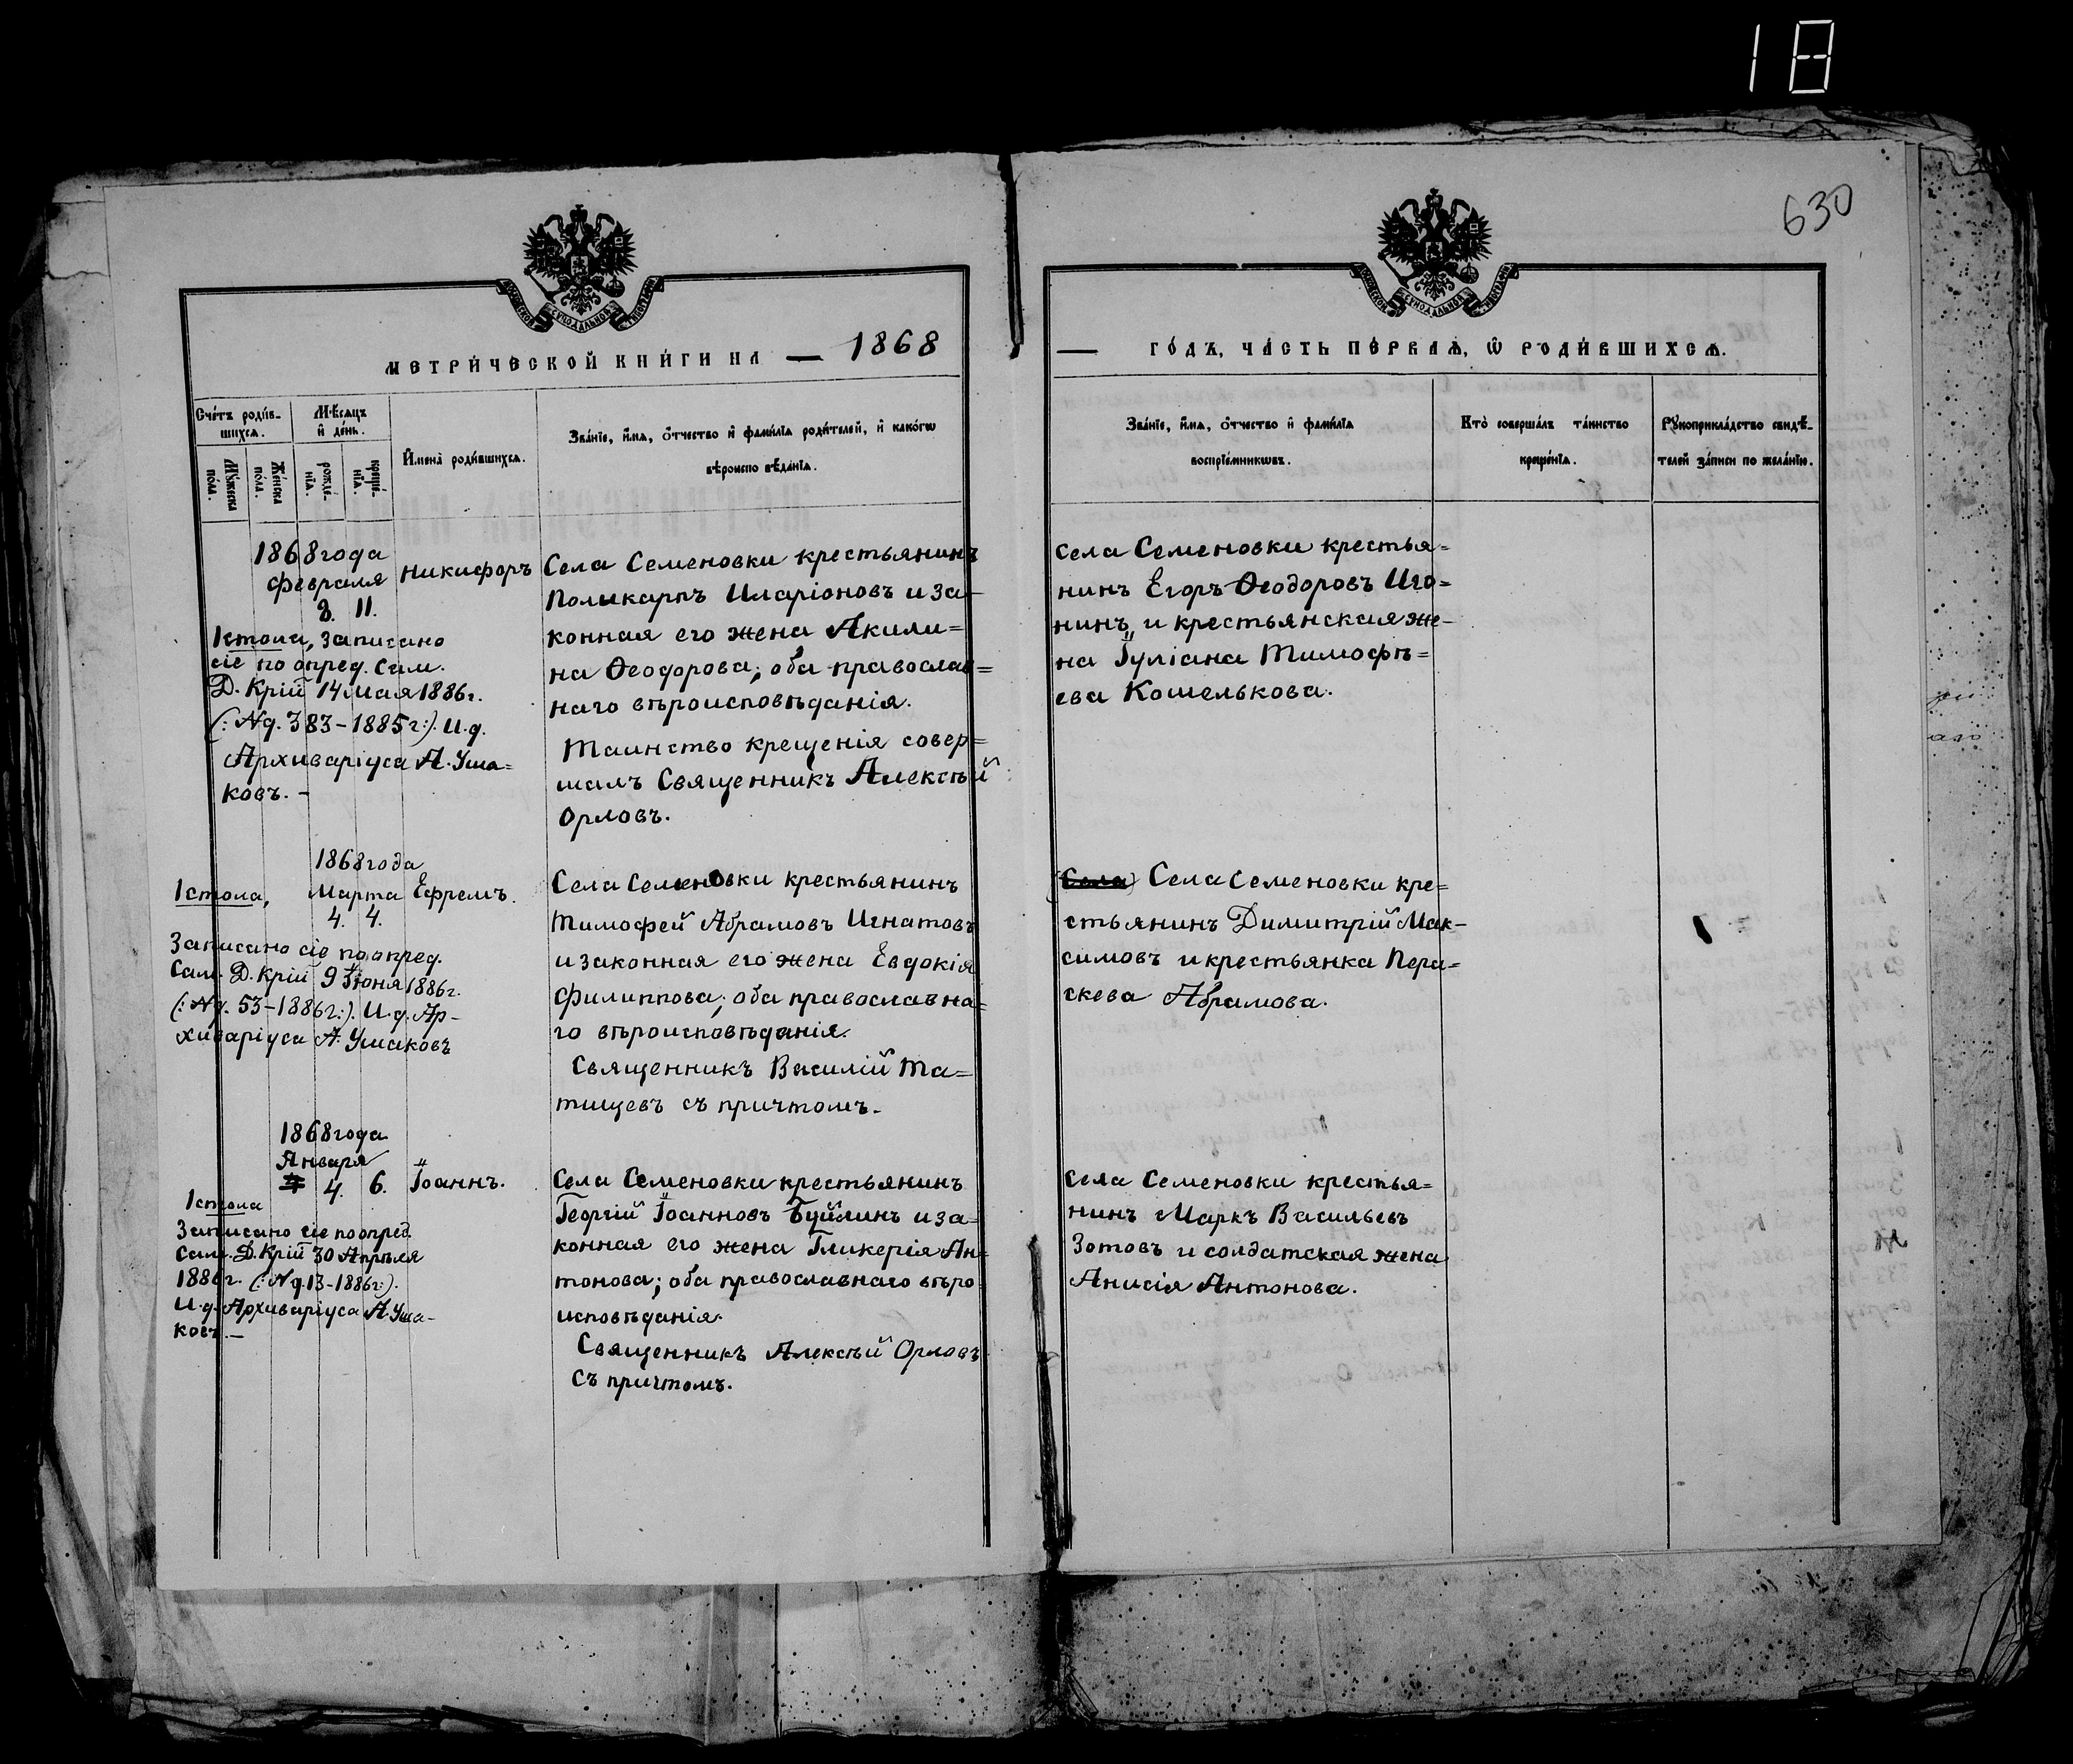 18
630
МЕТРИ́ЧЕСКОЙ КНИ́ГИ НА — 1868
— ГО́ДЪ, ЧА́СТЬ ПЕ́РВАѦ, Ѡ҆ РОДИ́ВШИХСѦ.
Сче́тъ роди́в-
шихсѧ.
Мѣ́сѧцъ
и҆ де́нь.
Мꙋ́жеска
по́ла.
Же́нска
по́ла.
рожде́-
нїѧ.
креще́-
нїѧ.
И҆мена̀ роди́вшихсѧ.
Зва́нїе, и҆́мѧ, ѻ҆́тчество и҆ фами́лїѧ роди́телей, и҆ како́гѡ
вѣроисповѣ́данїѧ.
Зва́нїе, и҆́мѧ, ѻ҆́тчество и҆ фами́лїѧ
воспрїе́мникѡвъ.
Кто̀ соверша́лъ та́инство
креще́нїѧ.
Рꙋкоприкла́дство свидѣ́-
телей за́писи по жела́нїю.
1868 года
Февраля
8. 11.
Никифоръ
1 стола, Записано
сіе по опред. Сам.
Д. Крій 14 Мая 1886 г.
(: №д. 383-1885 г:). И. д.
Архиваріуса А. Уша=
ковъ. -
Села Семеновки крестьянинъ
Поликарпъ Иларіоновъ и за-
конная его жена Акили=
на Ѳеодорова; оба православ=
наго вѣроисповѣданія.
Таинство крещенія совер=
шалъ Священникъ Алексѣй
Орловъ.
Села Семеновки крестья=
нинъ Егоръ Ѳеодоровъ Иго=
нинъ, и крестьянская же-
на Іуліана Тимофѣ=
ева Кошелькова.
1868 года
1 стола, Марта Ефремъ.
4. 4.
Записано сіе по опред.
Сам. Д. Крій 9 Іюня 1886 г.
(: №д. 53-1886 г:). И. д. Ар-
хиваріуса А. Ушаковъ
Села Семеновки крестьянинъ
Тимофей Абрамовъ Игнатовъ
и законная его жена Евдокія
Филиппова; оба православна=
го вѣроисповѣданія.
Священникъ Василій Та=
тищевъ съ причтомъ.
(Села) Села Семеновки кре=
стьянинъ Димитрій Мак-
симовъ и крестьянка Пера-
скева Абрамова.
1868 года
Января
4. 6. Іоаннъ.
1 стола
Записано сіе по опред.
Сам. Д. Крій 30 Апрѣля
1886 г. (: №д. 13-1886 г:).
И. д. Архиваріуса А. Уша-
ковъ. -
Села Семеновки крестьянинъ
Георгій Іоанновъ Буйлинъ и за=
конная его жена Гликерія Ан=
тонова; оба православнаго вѣро
исповѣданія.
Священникъ Алексѣй Орловъ
съ причтомъ.
Села Семеновки крестья=
нинъ Маркъ Васильевъ
Зотовъ и солдатская жена
Анисія Антонова.